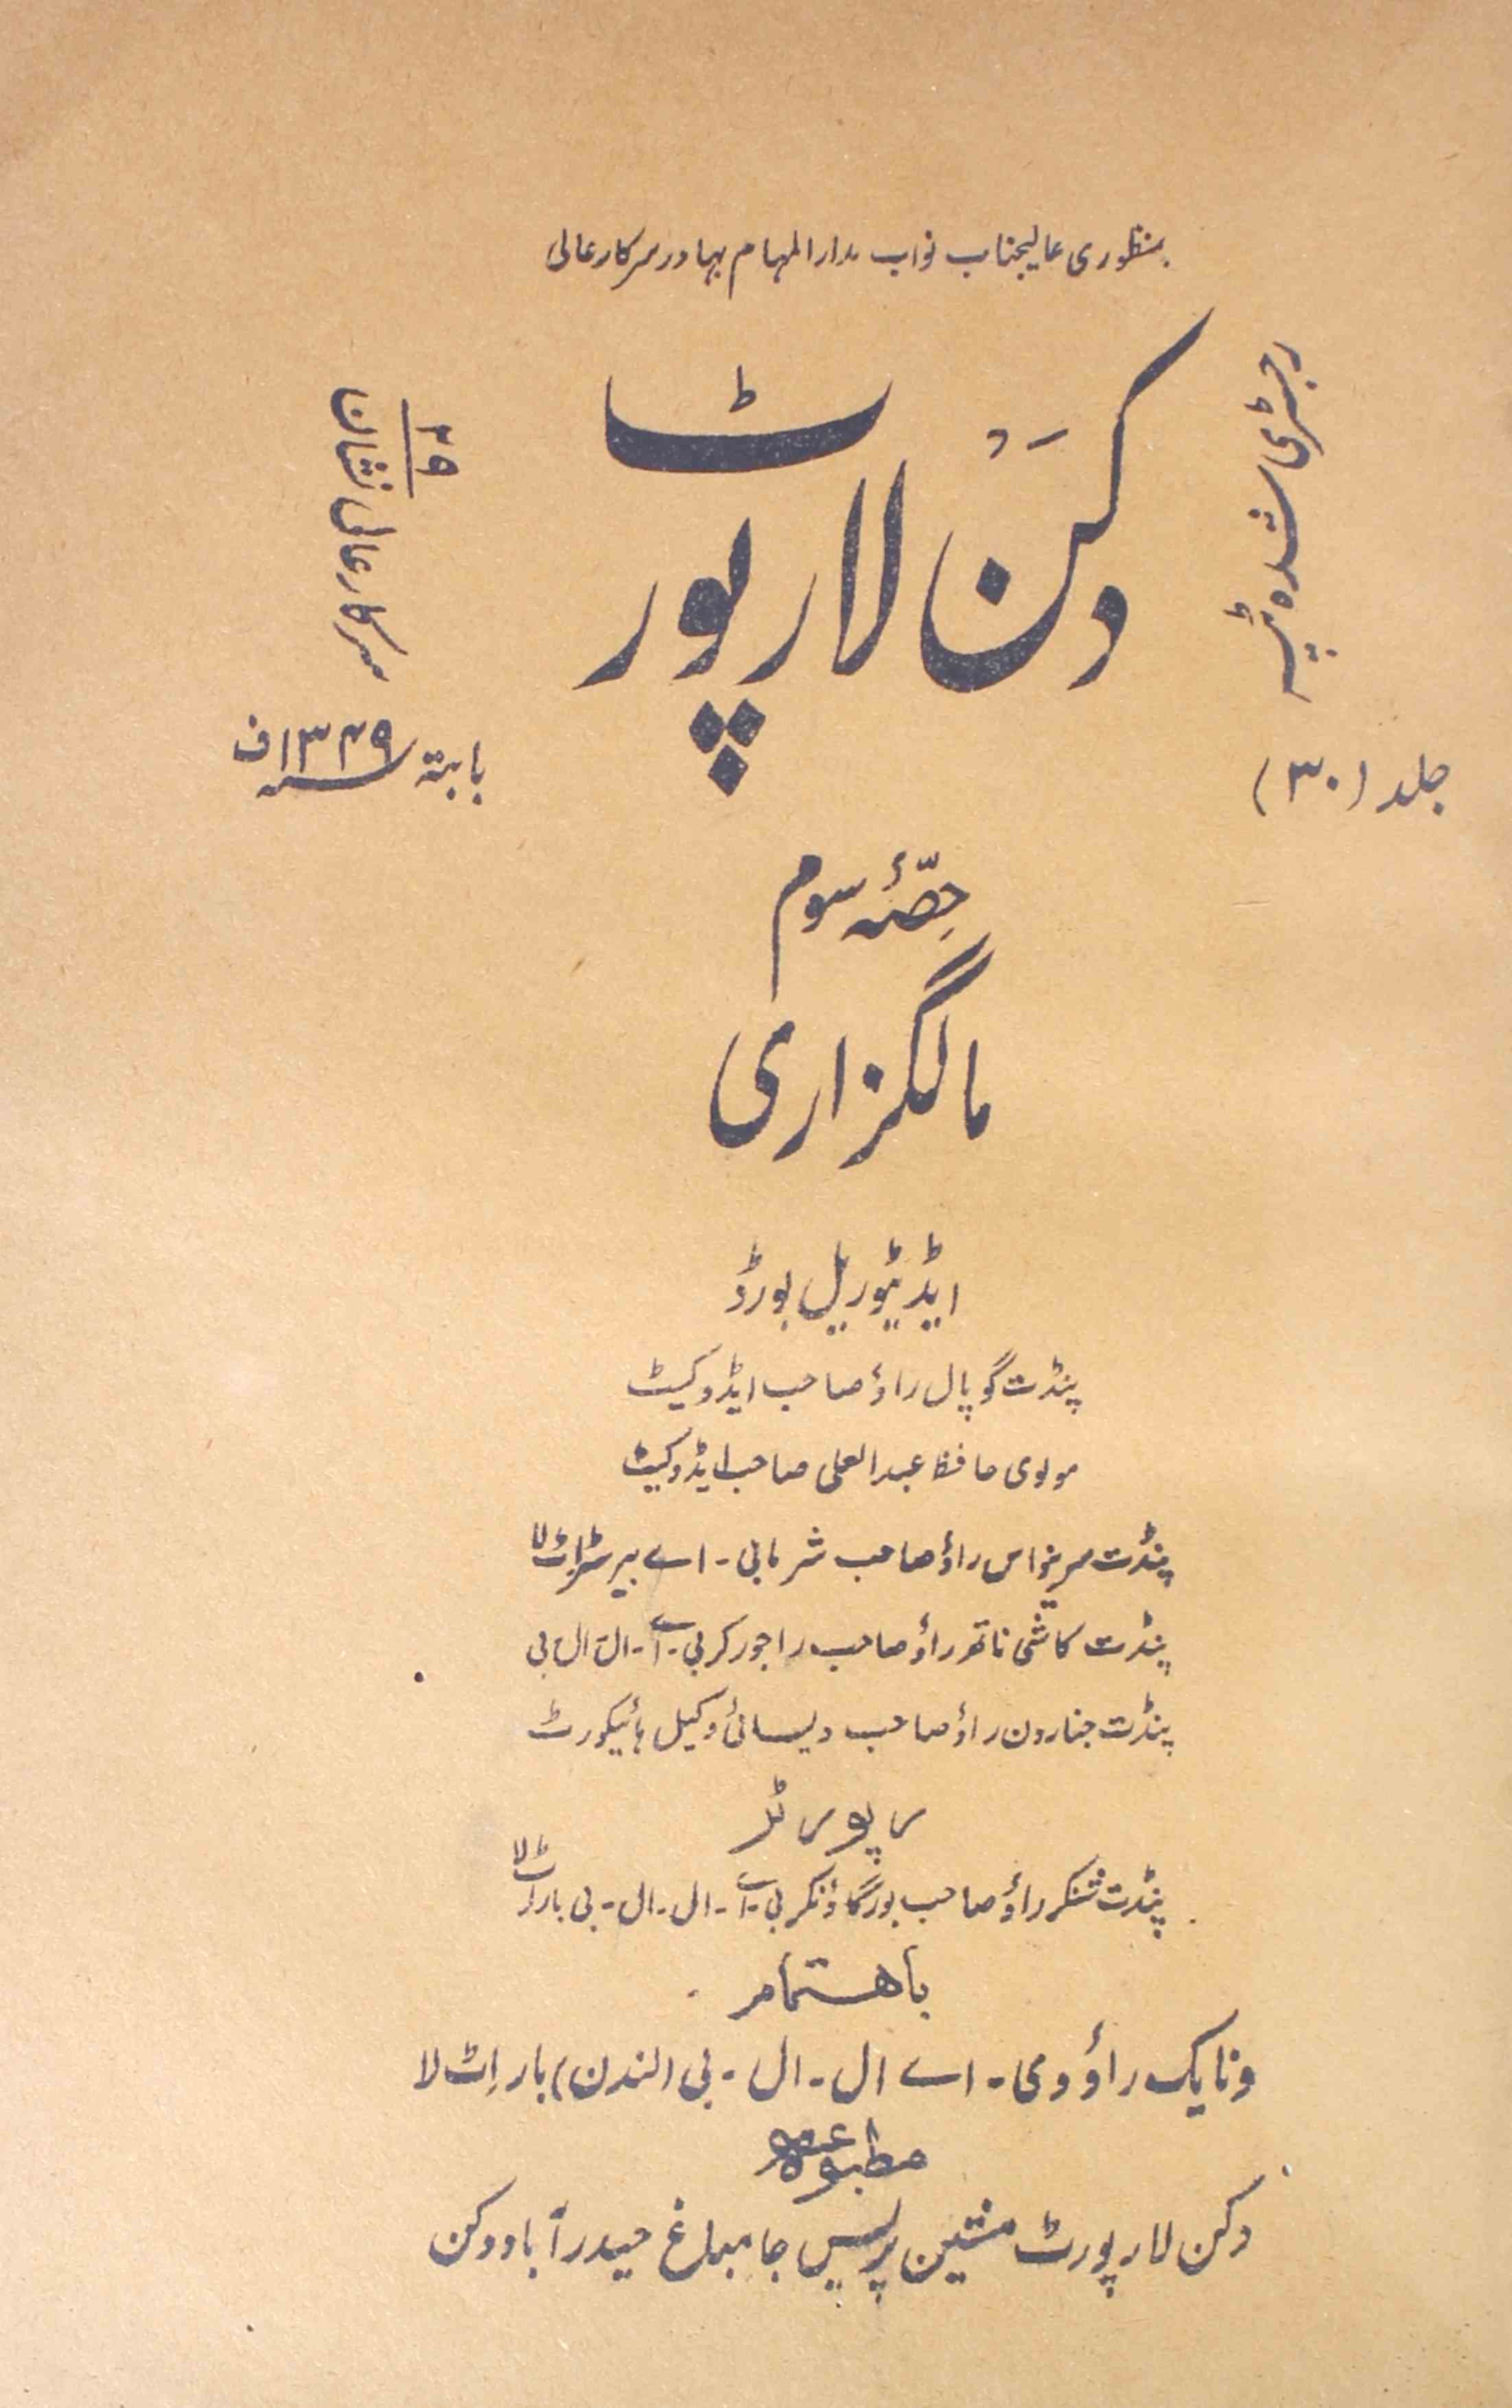 بمنظوری عالیجناب نواب مدارالمہام بہادر سرکار عالی
رجسٹری شدہ ٹپہ
دکن لا رپورٹ
سرکار عالی نشان ۲۹
جلد (۳۰)
بابتہ ۱۳۴۹ف
حصّۂ سوم
مالگزاری
ایڈیٹوریل بورڈ
پنڈت گوپال راؤ صاحب ایڈوکیٹ
مولوی حافظ عبدالعلی صاحب ایڈوکیٹ
پنڈت سرینواس راؤ صاحب شرما بی - اے بیرسٹراٹ لا
پنڈت کاشی ناتھ راؤ صاحب راجورکر بی - اے - ال ال بی
پنڈت جناردن راؤ صاحب دیسائی وکیل ہائیکورٹ
رپورٹر
پنڈت شنکر راؤ صاحب بورگاؤنکر بی - اے - ال - ال - بی باراٹ لا
باہتمام
ونایک راؤ وی - اے ال - ال - بی (لندن) بار اِٹ لا
مطبوعہ
دکن لا رپورٹ مشین پریس جامباغ حیدرآباد دکن